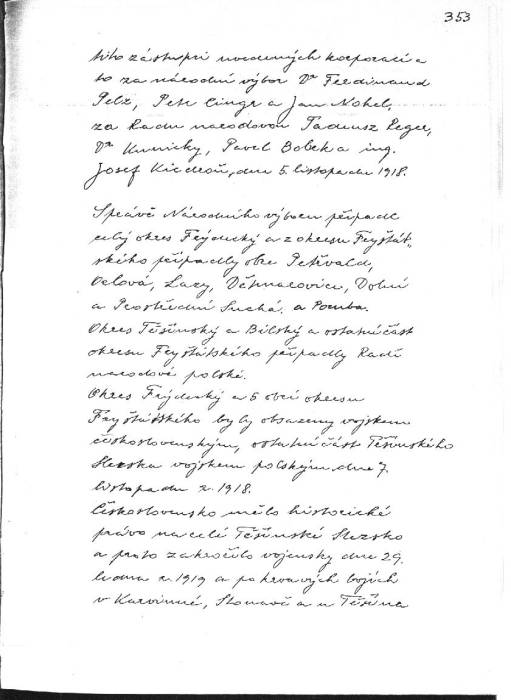 353
tito zástupci uvedených korporací a
to za národní výbor Dr Ferdinand
Pelz, Petr Cingr a Jan Nohel,
za Radu narodovou Tadeusz Reger,
Dr Kunicky, Pavel Bobek a ing.
Josef Kiedroň, dne 5. listopadu 1918.
Správě Národního výboru připadl
celý okres Frýdecký a z okresu Fryštát-
ského připadly obce Petřvald,
Orlová, Lazy, Dětmarovice, Dolní
a Prostřední Suchá. a Poruba.
Okres Těšínský a Bílský a ostatní část
okresu Fryštátského připadly Radě
narodové polské.
Okres Frýdecký a 5 obcí okresu
Fryštátského byly obsazeny vojskem
československým, ostatní část Těšínského
Slezska vojskem polským dne 7.
listopadu r. 1918.
Československo mělo historické
právo na celé Těšínské Slezsko
a proto zakročilo vojensky dne 29.
ledna r. 1919 a po krvavých bojích
v Karvinné, Stonavě a u Těšína